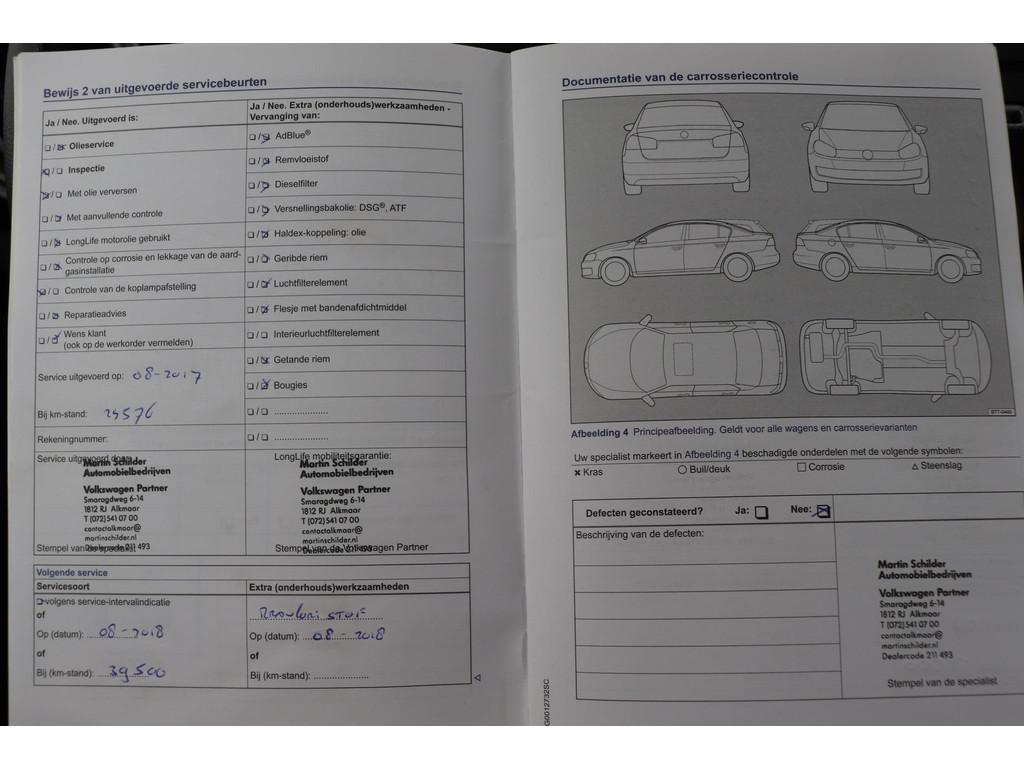 Bewijs 2 van uitgevoerde servicebeurten
Ja / Nee. Uitgevoerd is:
Olieservice
Inspectie
Met olie verversen
Met aanvullende controle
LongLife motorolie gebruikt
Controle op corrosie en lekkage van de aard-
gasinstallatie
Controle van de koplampafstelling
Reparatieadvies
Wens klant
(ook op de werkorder vermelden)
Service uitgevoerd op: 08-2017
Bij km-stand: 24576
Rekeningnummer:
Service uitgevoerd door:
Martin Schilder
Automobielbedrijven
Volkswagen Partner
Smaragdweg 6-14
1812 RJ Alkmaar
T (072) 541 07 00
contactalkmaar@
martinschilder.nl
Dealercode 211 493
Stempel van de specialist
Ja / Nee. Extra (onderhouds)werkzaamheden -
Vervanging van:
AdBlue®
Remvloeistof
Dieselfilter
Versnellingsbakolie: DSG®, ATF
Haldex-koppeling: olie
Geribde riem
Luchtfilterelement
Flesje met bandenafdichtmiddel
Interieurluchtfilterelement
Getande riem
Bougies
LongLife mobiliteitsgarantie:
Martin Schilder
Automobielbedrijven
Volkswagen Partner
Smaragdweg 6-14
1812 RJ Alkmaar
T (072) 541 07 00
contactalkmaar@
martinschilder.nl
Dealercode 211 493
Stempel van de Volkswagen Partner
Volgende service
Servicesoort
volgens service-intervalindicatie
of
Op (datum): 08-2018
of
Bij (km-stand): 39500
Extra (onderhouds)werkzaamheden
Op (datum): 08-2018
of
Bij (km-stand):
Documentatie van de carrosseriecontrole
B7T-0460
Afbeelding 4 Principeafbeelding. Geldt voor alle wagens en carrosserievarianten
Uw specialist markeert in Afbeelding 4 beschadigde onderdelen met de volgende symbolen:
× Kras ○ Buil/deuk □ Corrosie △ Steenslag
Defecten geconstateerd? Ja: Nee:
Beschrijving van de defecten:
Martin Schilder
Automobielbedrijven
Volkswagen Partner
Smaragdweg 6-14
1812 RJ Alkmaar
T (072) 541 07 00
contactalkmaar@
martinschilder.nl
Dealercode 211 493
Stempel van de specialist
G0012732SC